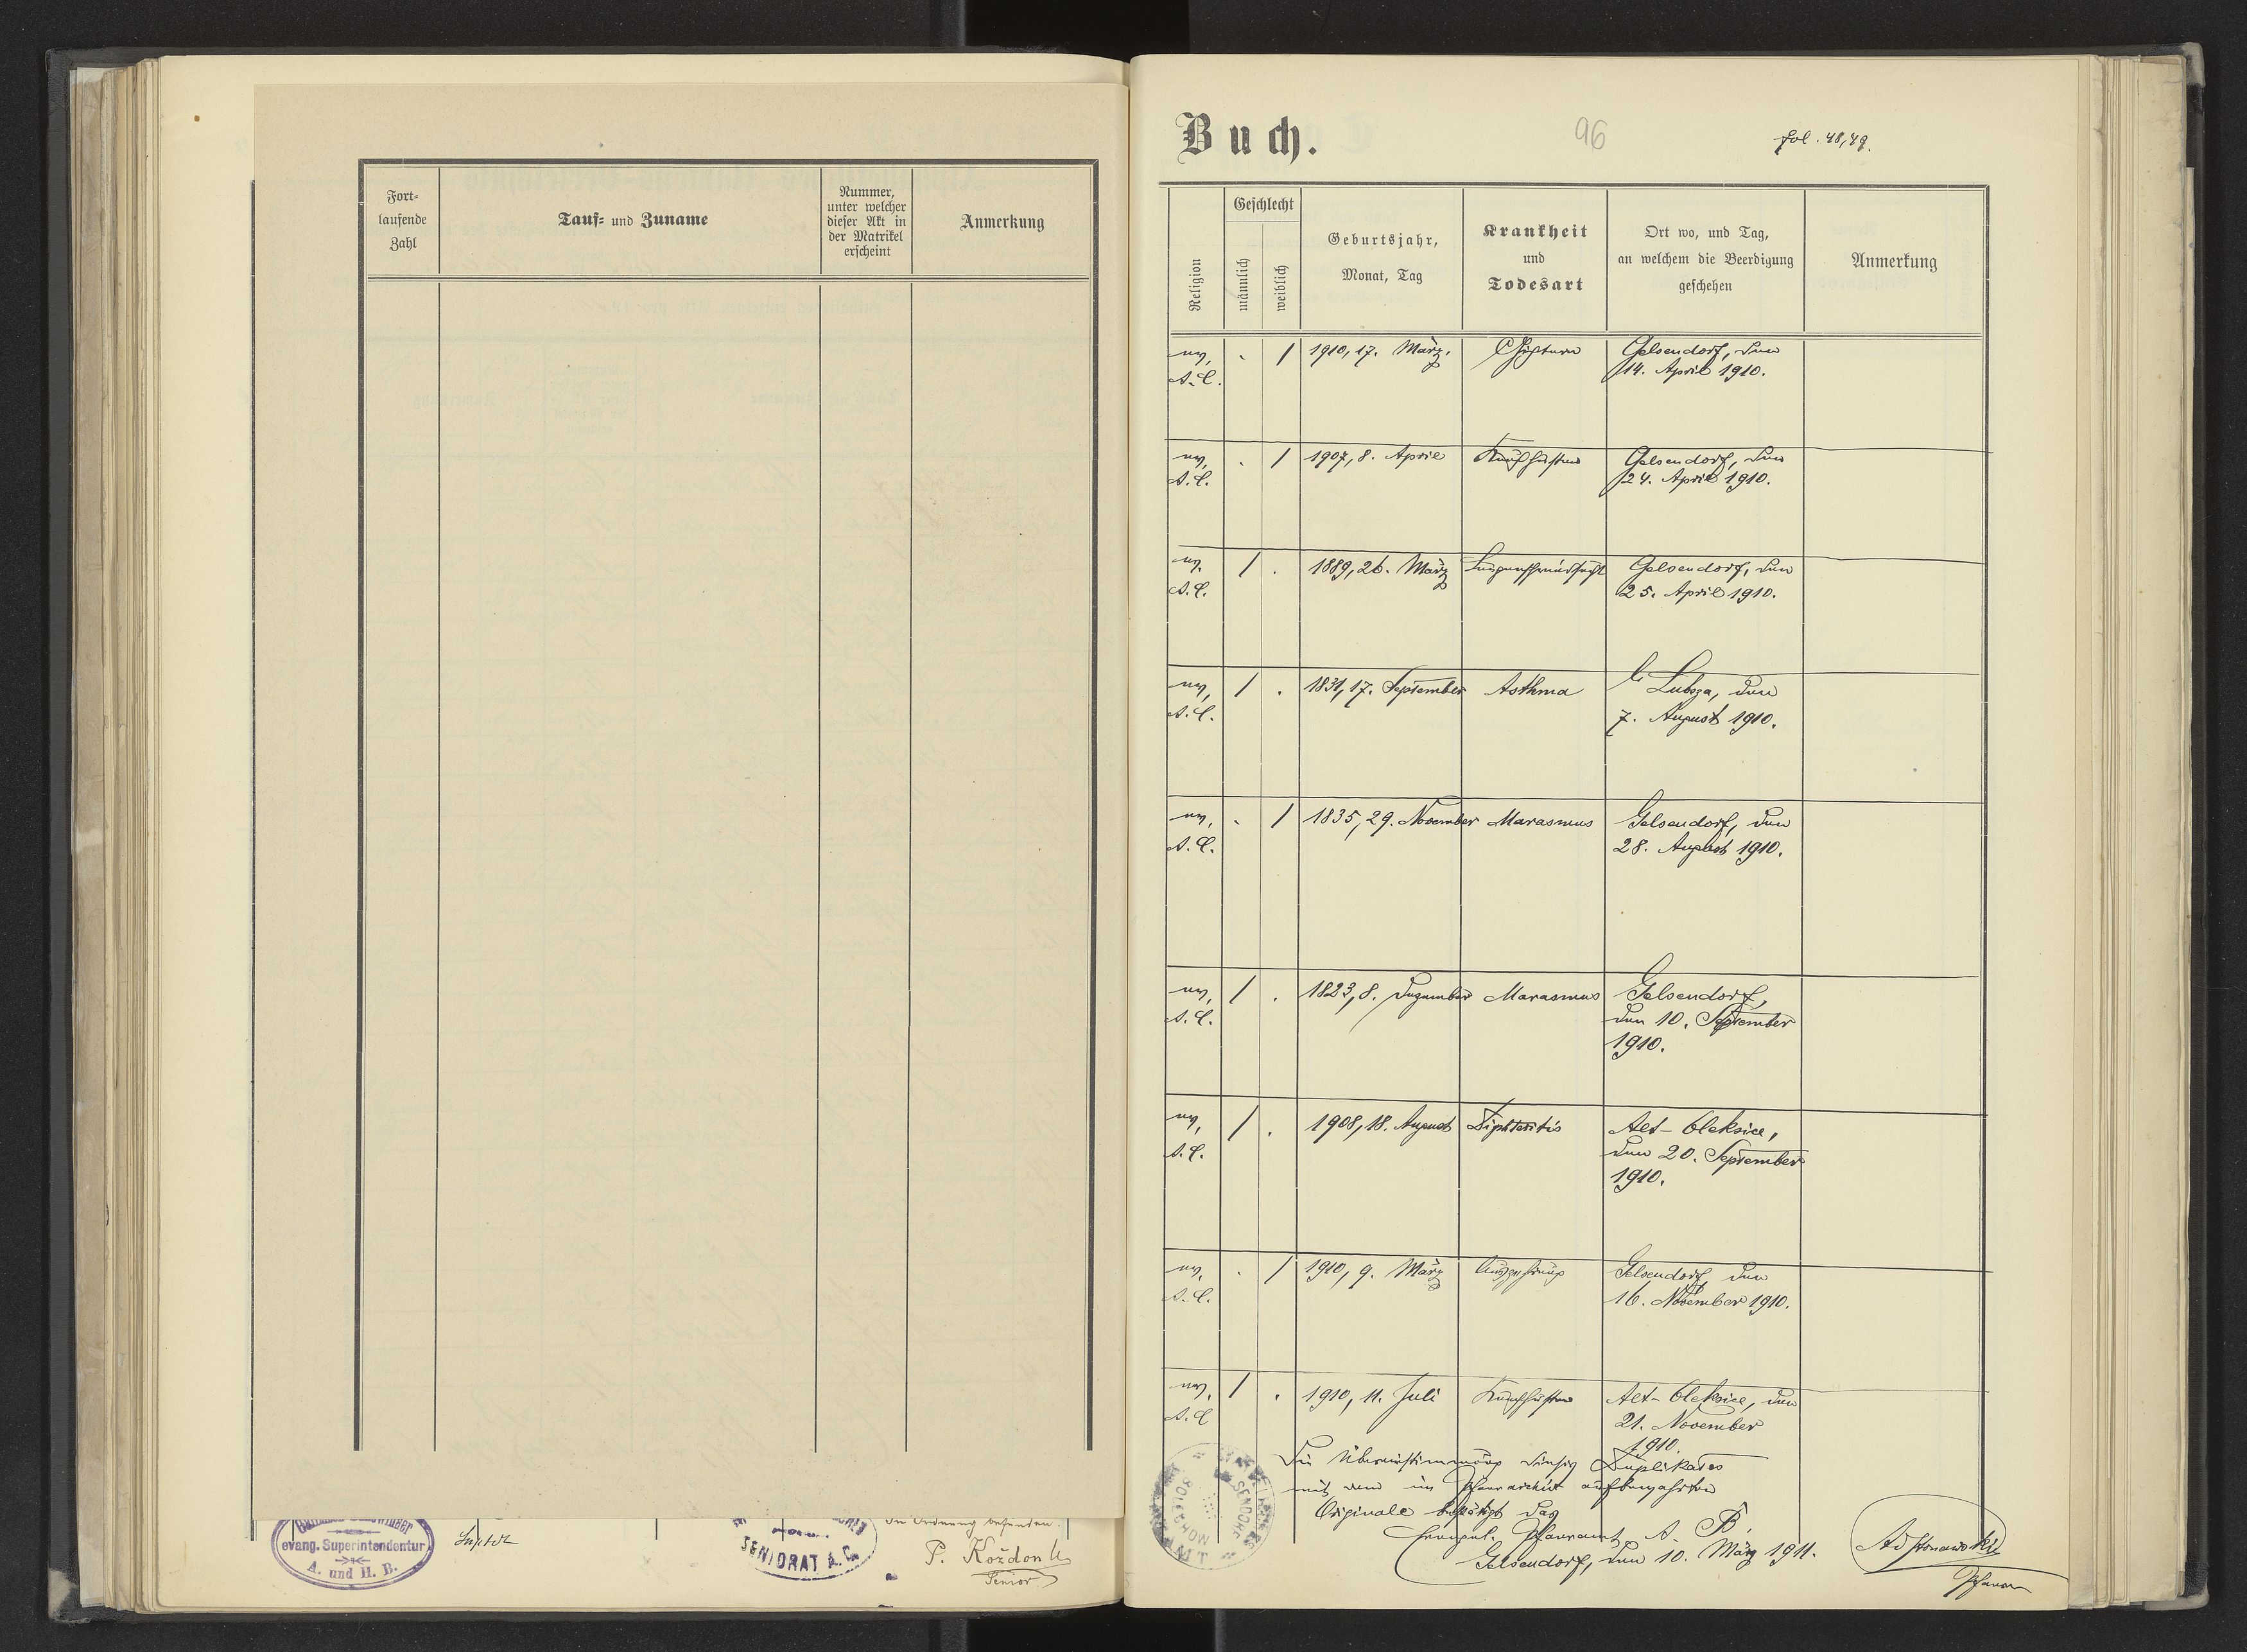 Fort-
laufende
Zahl
Tauf- und Zuname
Nummer,
unter welcher
dieser Akt in
der Matrikel
erscheint
Anmerkung
evang. Superintendentur
A. und H. B.
SENIORAT A. C.
in Ordnung befunden.
P. Koždoń
Senior
Buch.
96
fol. 48, 49.
Religion
Geschlecht
männlich
weiblich
Geburtsjahr,
Monat, Tag
Krankheit
und
Todesart
Ort wo, und Tag,
an welchem die Beerdigung
geschehen
Anmerkung
ev. A. C. . / 1910, 17. März. Gelsendorf, den
14. April 1910.
ev. A. C. . / 1907, 8. April Keuchhusten Gelsendorf, den
24. April 1910.
ev. A. C. / . 1889, 26. März Lungenschwindsucht Gelsendorf, den
25. April 1910.
ev. A. C. / . 1831, 17. September Asthma Lubsza, den
7. August 1910.
ev. A. C. . / 1835, 29. November Marasmus Gelsendorf, den
28. August 1910.
ev. A. C. / . 1823, 8. Dezember Marasmus Gelsendorf,
den 10. September
1910.
ev. A. C. / . 1908, 18. August Diphteritis Alt-Oleksice,
den 20. September
1910.
ev. A. C. . / 1910, 9. März Auszehrung Gelsendorf, den
16. November 1910.
ev. A. C. / . 1910, 11. Juli Keuchhusten Alt-Oleksice, den
21. November
1910.
Die Übereinstimmung dieses Duplikates
mit dem im Pfarrarchiv aufbewahrten
Originale bestätigt das
Evangel. Pfarramt A. B.
Gelsendorf, den 10. März 1911.
Pfarrer